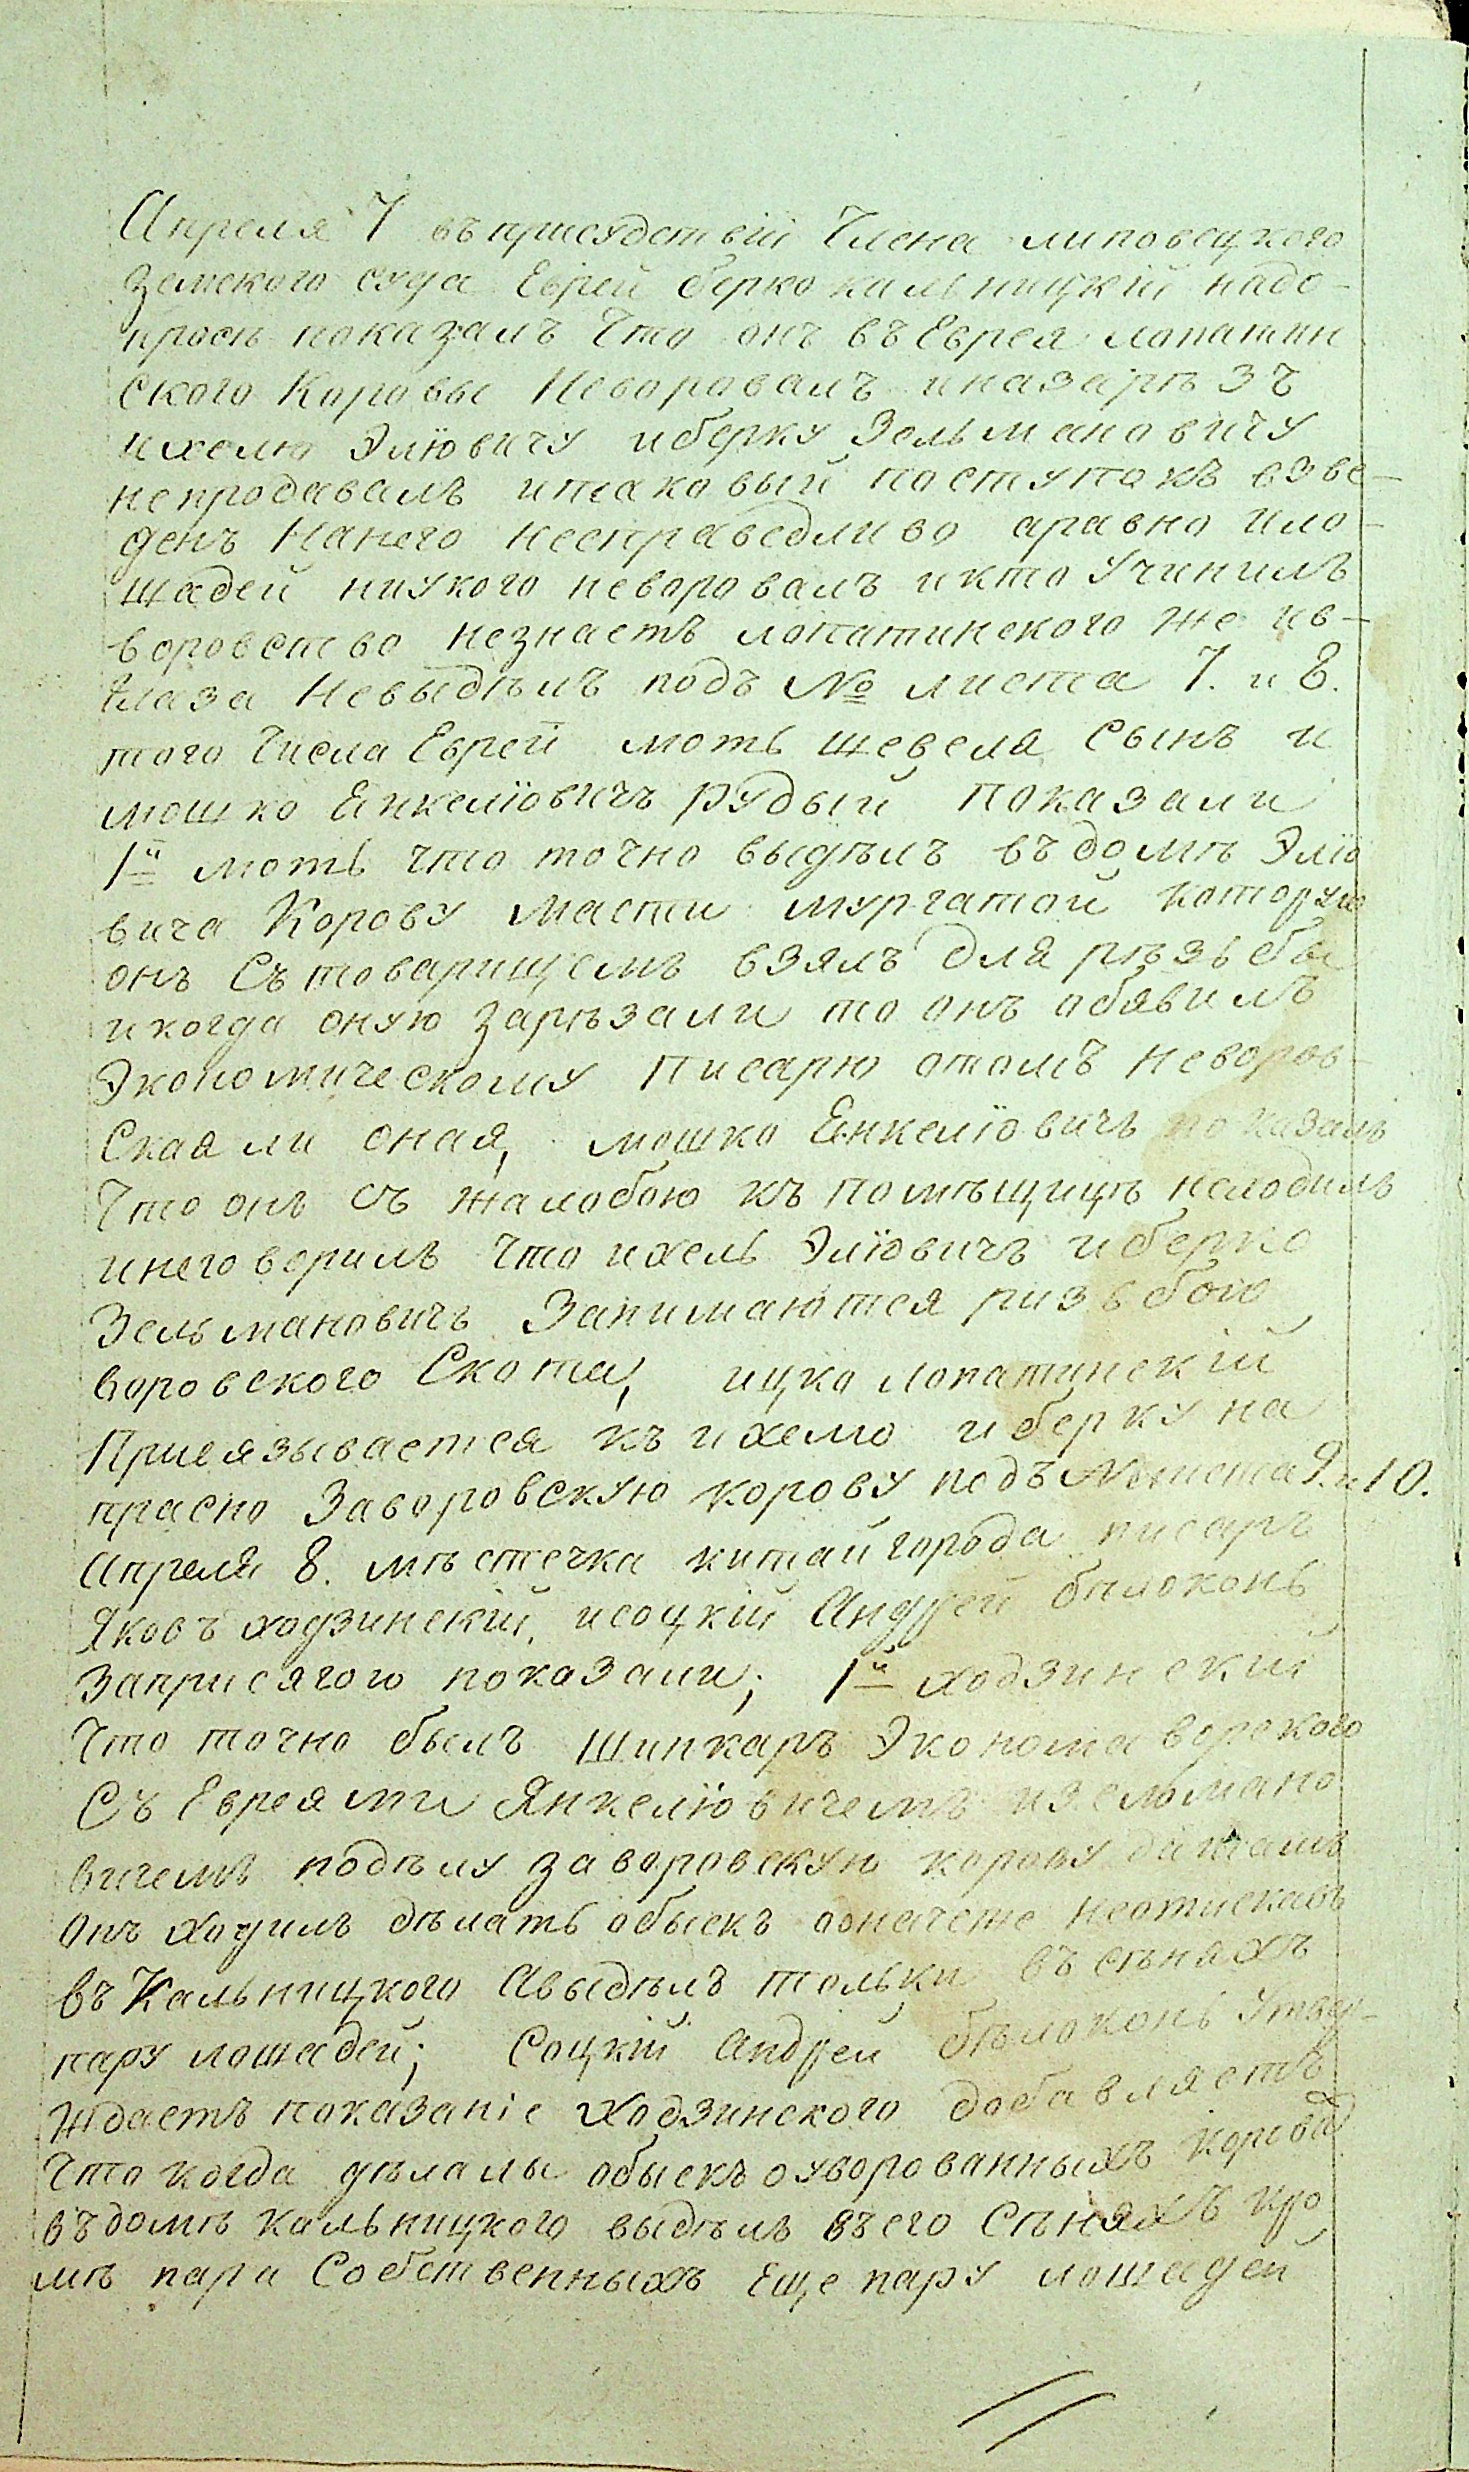 Апреля 7 въприсудствіи Члена липовецкого
Земского суда Еврей берко кальницкій надо-
просѣ показалъ Что онъ въ Еврея лопатин
ского Коровы Неворовалъ иназарѣзъ
ихелю Элїовичу иберку Зельмановичу
непродавалъ итаковый поступокъ взве-
денъ Нанего несправедливо аравно ило-
шадей ниукого неворовалъ икто Учинилъ
воровство незнаетъ лопатинского же ив-
глаза Невыдѣлъ подъ № листа 7. и 8.
того Числа Еврей моть шевеля Сынъ и
мошко Енкелїовичъ рудый показали
1й моть что точно выдѣлъ въ домѣ Элїо
вича Корову масти мургатой которую
онъ Съ товарищемъ взялъ для рѣзьбы
икогда оную зарѣзали то онъ обявилъ
Экономическому Писарю отомъ неворов
Ская ли оная, мошко Енкелїовичъ показалъ
Что онъ съ жалобою къ помѣщицѣ неходилъ
инеговорилъ Что ихель Элїовичъ иберко
Зельмановичъ Занимаются ризьбою
воровского Скота, ицко лопатинскій
Привязывается къ ихелю иберку на
прасно Заворовскую корову подъ № листа 9. и 10.
Апреля 8. мѣстечка китайгорода писарь
Яковъ ходзинскій, исоцкій Андрей билоконь
Заприсягою показали; 1й ходзинский
Что точно былъ шинкаръ Эконома ворского
Съ Евреями Янкелїовичемъ изельмано
вичемъ подѣлу заворовскую корову
Онъ Ходилъ дѣлать обыскъ неотискавъ
въ Кальницкого Авыдѣлъ тольки въ сѣняхъ
пару лошадей; Соцкій Андрей бѣлоконь Утвер-
ждаетъ показаніе Ходзинского добавляетъ
Что когда дѣлалы обыскъ оуворованныхъ коровъ
въ домѣ кальницкого выдѣлъ въего Сѣняхъ кро
мѣ пари Собственныхъ Еще пару лошадей